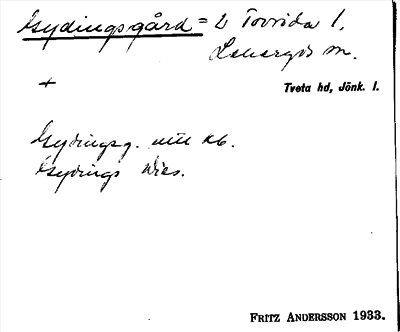 Gydingsgård = 2 Torrida 1.
m.
+
Tveta hd, Jönk. l.
Gydingsg. mtl kb.
Gydings dics.
FRITZ ANDERSSON 1933.